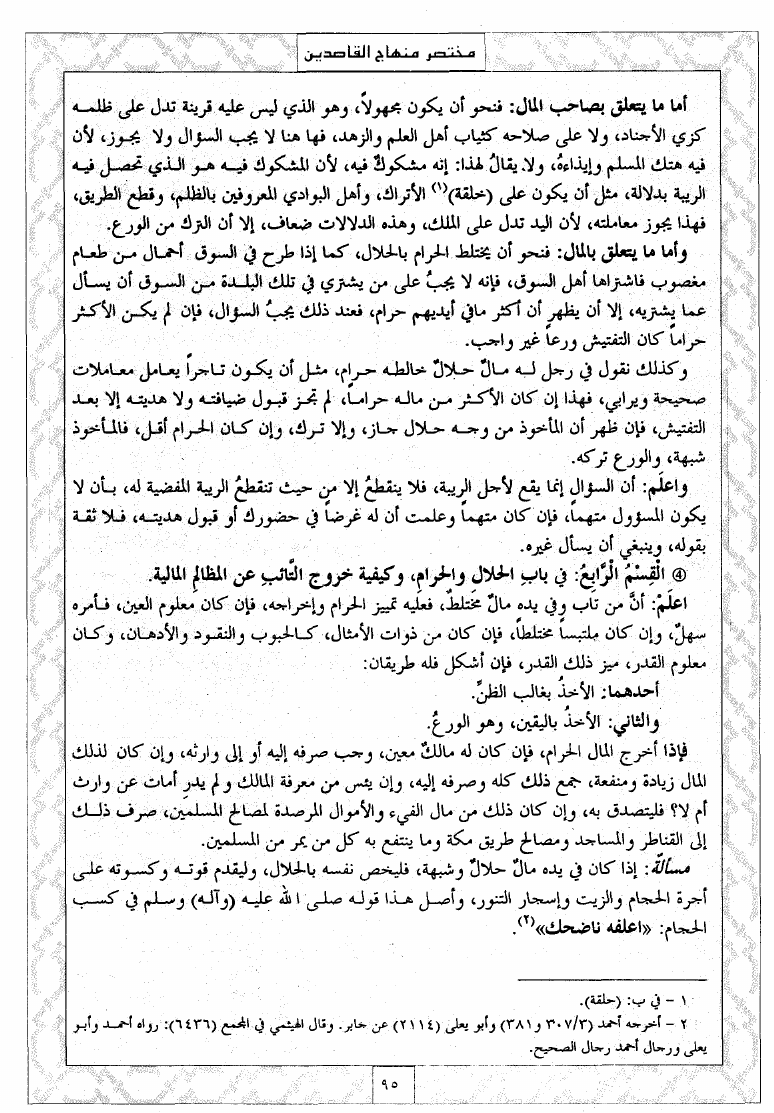 مختصر منهاج القاصدين
أما ما يتعلق بصاحب المال: فنحو أن يكون مجهولاً، وهو الذي ليس عليه قرينة تدل على ظلمه
كزي الأجناد، ولا على صلاحه كثياب أهل العلم والزهد، فها هنا لا يجب السؤال ولا يجوز، لأن
فيه هتك المسلم وإيذاءهُ، ولا يقالُ لهذا: إنه مشكوكٌ فيه، لأن المشكوك فيه هو الذي تحصل فيه
الريبة بدلالة، مثل أن يكون على (خلقة)(١) الأتراك، وأهل البوادي المعروفين بالظلم، وقطع الطريق،
فهذا يجوز معاملته، لأن اليد تدل على الملك، وهذه الدلالات ضعاف، إلا أن الترك من الورع.
وأما ما يتعلق بالمال: فنحو أن يختلط الحرام بالحلال، كما إذا طرح في السوق أحمال من طعام
مغصوب فاشتراها أهل السوق، فإنه لا يجبُ على من يشتري في تلك البلدة من السوق أن يسأل
عما يشتريه، إلا أن يظهر أن أكثر مافي أيديهم حرام، فعند ذلك يجبُ السؤال، فإن لم يكن الأكثر
حراماً كان التفتيش ورعاً غير واجب.
وكذلك نقول في رجل له مالٌ حلالٌ خالطه حرام، مثل أن يكون تاجراً يعامل معاملات
صحيحة ويرابي، فهذا إن كان الأكثر من ماله حراماً، لم تجز قبول ضيافته ولا هديته إلا بعد
التفتيش، فإن ظهر أن المأخوذ من وجه حلال جاز، وإلا ترك، وإن كان الحرام أقل، فالمأخوذ
شبهة، والورع تركه.
واعلَم: أن السؤال إنما يقع لأجل الريبة، فلا ينقطعُ إلا من حيث تنقطعُ الريبة المفضية له، بأن لا
يكون المسؤول متهماً، فإن كان متهماً وعلمت أن له غرضاً في حضورك أو قبول هديته، فلا ثقة
بقوله، وينبغي أن يسأل غيره.
④ الْقِسْمُ الْرَّابِعُ: في باب الحلال والحرام، وكيفية خروج التَّائب عن المظالم المالية.
اعلَمْ: أنَّ من تاب وفي يده مالٌ مختلطٌ، فعليه تمييز الحرام وإخراجه، فإن كان معلوم العين، فأمره
سهلٌ، وإن كان ملتبساً مختلطاً، فإن كان من ذوات الأمثال، كالحبوب والنقود والأدهان، وكان
معلوم القدر، ميز ذلك القدر، فإن أشكل فله طريقان:
أحدهما: الأخذُ بغالب الظنِّ.
والثاني: الأخذُ باليقين، وهو الورعُ.
فإذا أخرج المال الحرام، فإن كان له مالكٌ معين، وجب صرفه إليه أو إلى وارثه، وإن كان لذلك
المال زيادة ومنفعة، جمع ذلك كله وصرفه إليه، وإن يئس من معرفة المالك ولم يدرِ أمات عن وارث
أم لا؟ فليتصدق به، وإن كان ذلك من مال الفيء والأموال المرصدة لمصالح المسلمين، صرف ذلك
إلى القناطر والمساجد ومصالح طريق مكة وما ينتفع به كل من يمر من المسلمين.
مسألة: إذا كان في يده مالٌ حلالٌ وشبهة، فليخص نفسه بالحلال، وليقدم قوته وكسوته على
أجرة الحجام والزيت وإسجار التنور، وأصل هذا قوله صلى الله عليه (وآله) وسلم في كسب
الحجام: «اعلفه ناضحك»(٢).
١ - في ب: (حلقة).
٢ - أخرجه أحمد (٣٠٧/٣ و٣٨١) وأبو يعلى (٢١١٤) عن جابر. وقال الهيثمي في المجمع (٦٤٣٦): رواه أحمد وأبو
يعلى ورجال أحمد رجال الصحيح.
٩٥